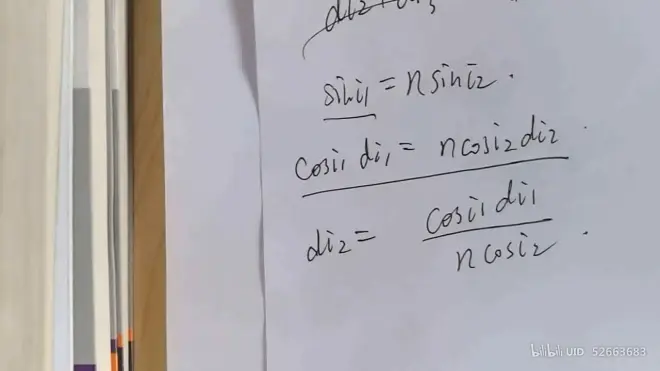 sini₁ = nsini₂.
cosi₁ di₁ = ncosi₂di₂
di₂ = cosi₁ di₁ / ncosi₂.
bilibili UID 52663683